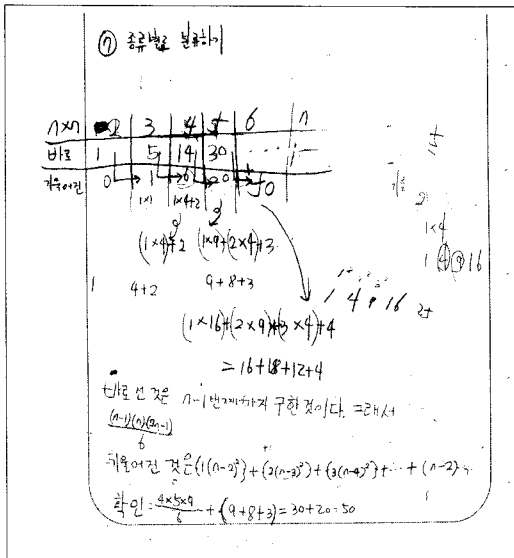 ⑦ 종류별로 분류하기
n×n 2 3 4 5 6 n
바로 1 5 14 30 ...
기울어진 0 1 6 20 50
1×1 1×4+2
(1×4)+2 (1×9)+(2×4)+3
1 4+2 9+8+3
1 4 9 16 25
(1×16)+(2×9)+(3×4)+4
= 16+18+12+4
바로 선 것은 n-1번째까지 구한 것이다. 그래서
(n-1)(n)(2n-1)
6
기울어진 것은 {1(n-2)²}+{2(n-3)²}+{3(n-4)²}+...+(n-2)
확인: 4×5×9/6 + (9+8+3) = 30+20=50
1×4
1 4 9 16